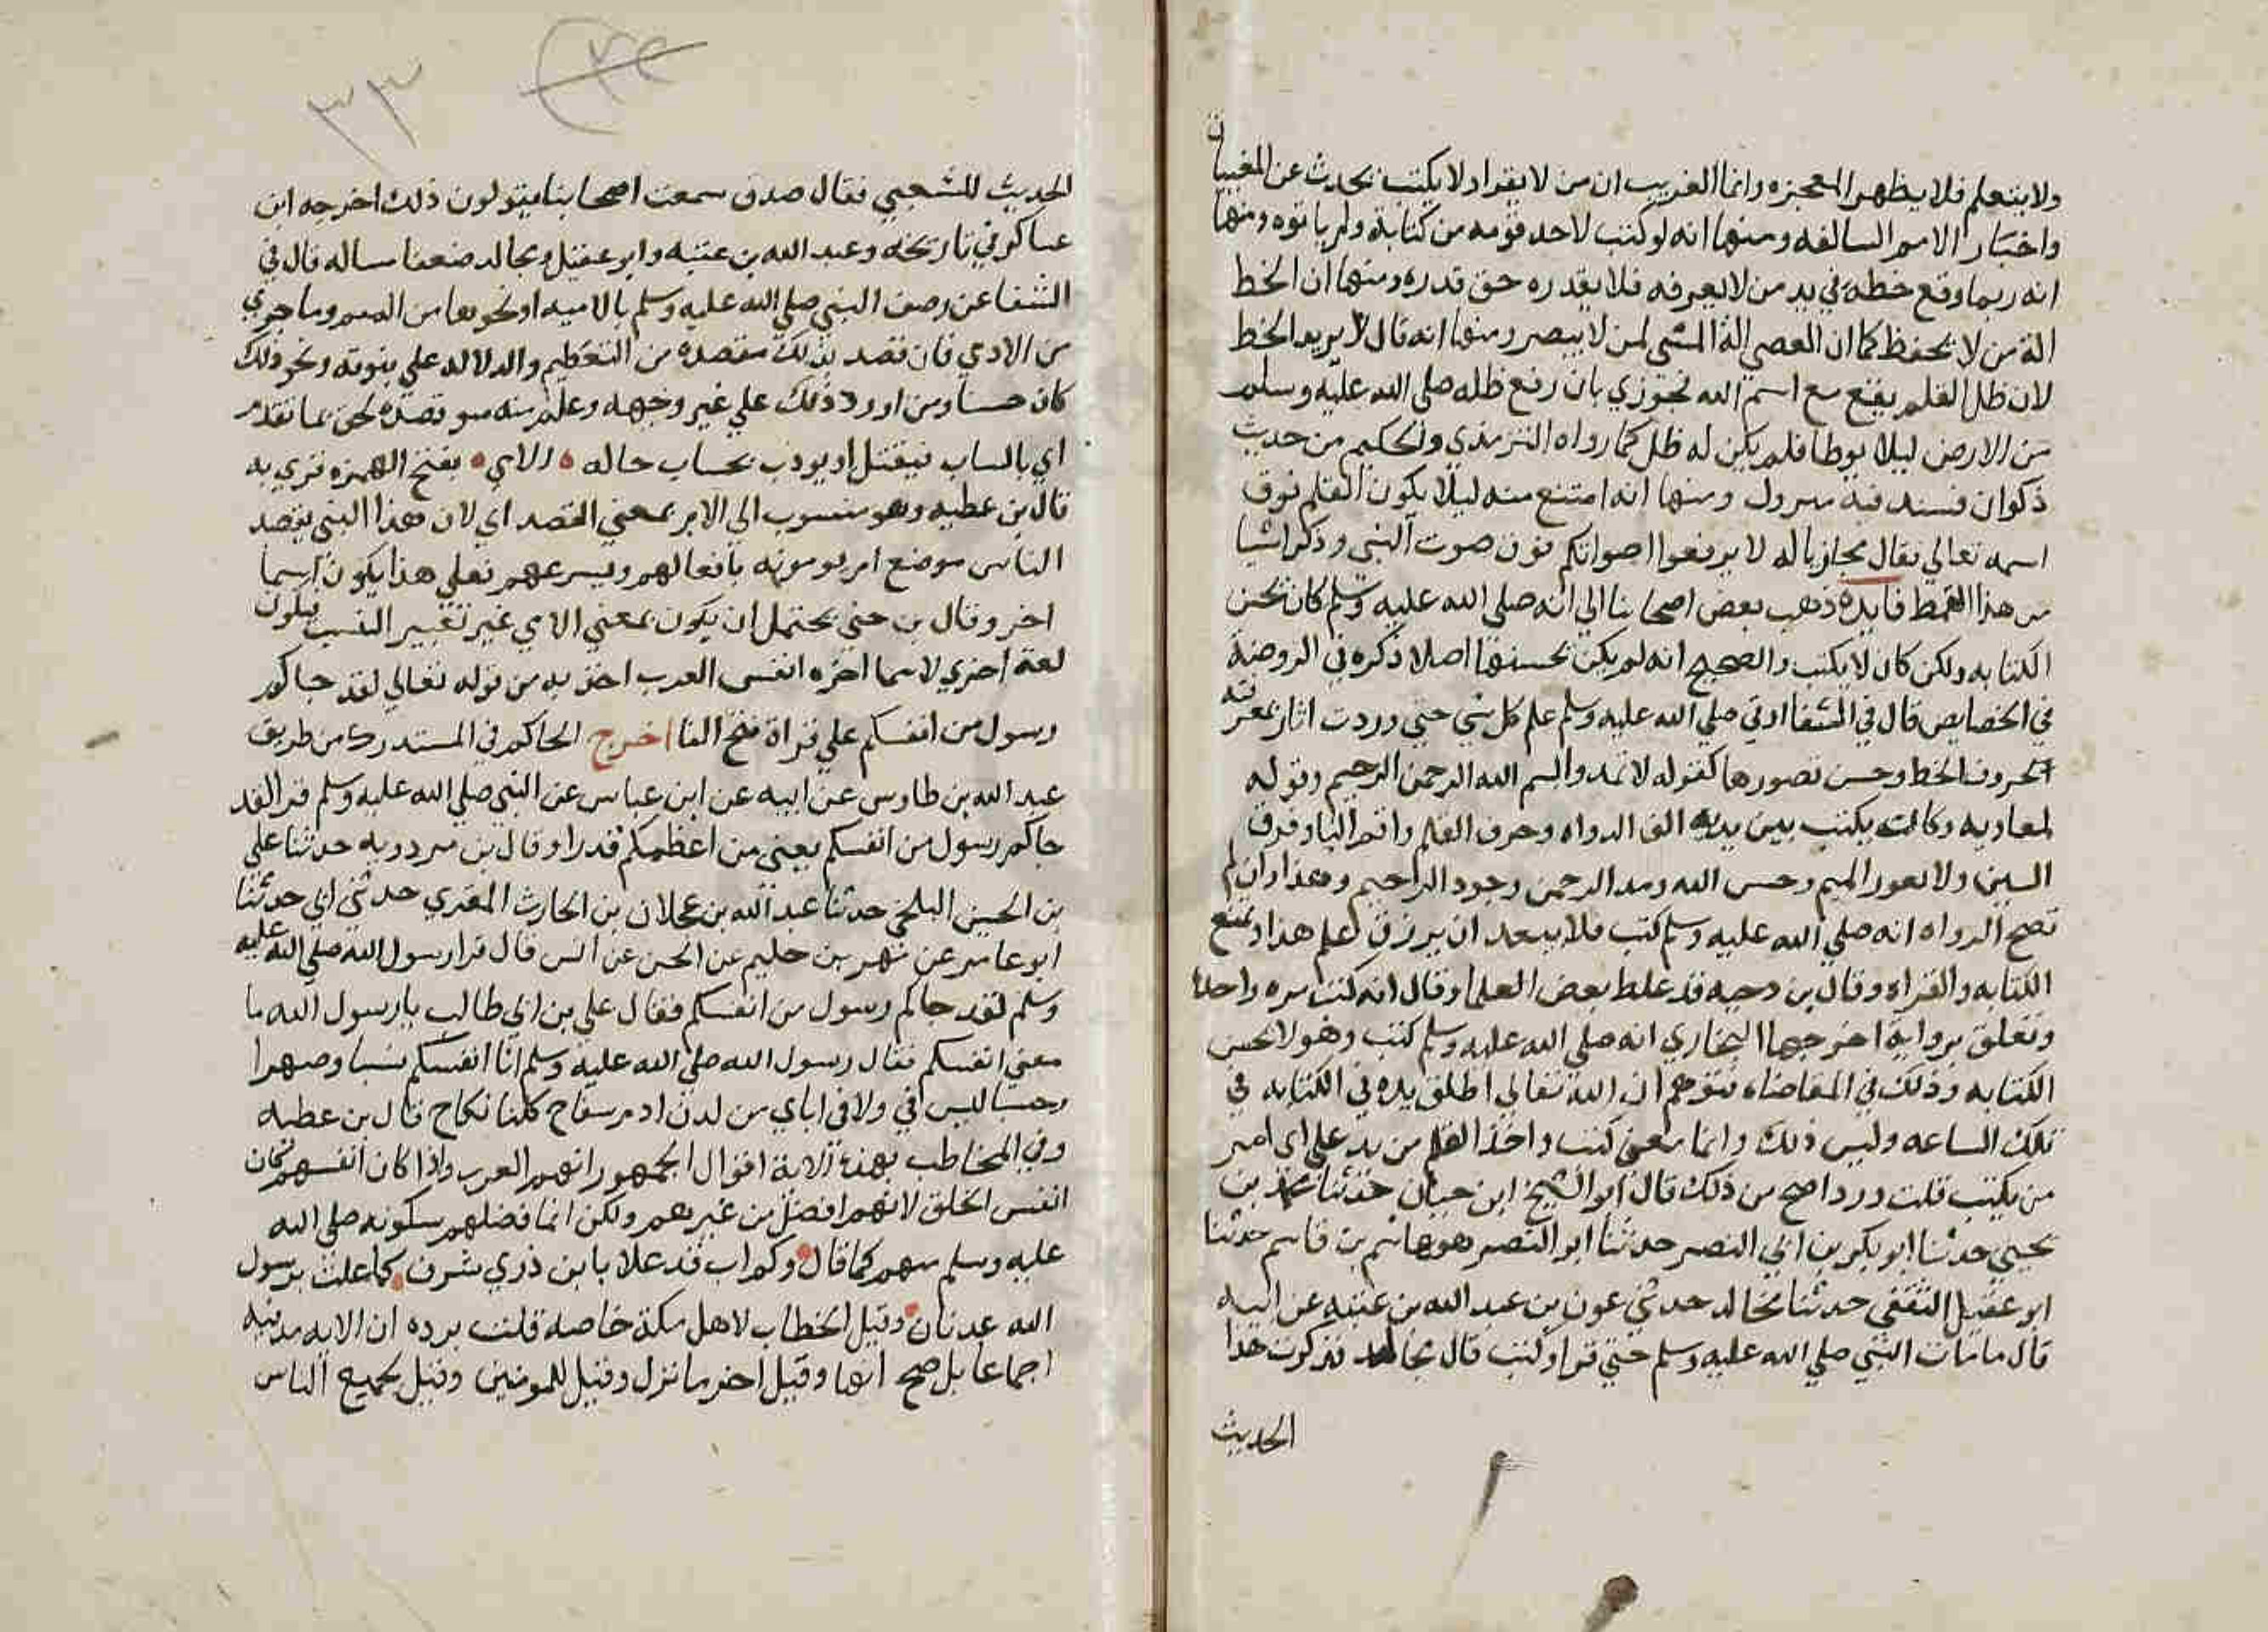 ولا يتعلم فلا يظهر المعجزه وانما الغريب ان من لا يقرا ولا يكتب يحدث عن المغيبات
واخبار الامم السالفه ومنها انه لو كتب لاحد قومه من كتابة ولم ياتوه ومنها
انه ربما وقع خطه في يد من لا يعرفه فلا يقدره حق قدره ومنها ان الخط
الة من لا يحفظ كما ان العصي الة المشي لمن لا يبصر ومنها انه قال لا يريد الخط
لان ظل القلم يقع مع اسم الله فجوزي بان رفع ظله صلى الله عليه وسلم
من الارض ليلا يوطا فلم يكن له ظل كما رواه الترمذي والحكيم من حديث
ذكوان فسند فيه ومنها انه امتنع منه ليلا يكون القلم فوق
اسمه تعالي فقال مجازيا له لا يرفعوا اصواتكم فوق صوت النبي وذكر اشيا
من هذا النمط فايدة ذهب بعض اصحابنا الي انه صلي الله عليه وسلم كان يحسن
الكتابه ولكن كان لا يكتب والصحيح انه لم يكن يحسنها اصلا ذكره في الروضة
في الخصايص قال في الشفا اوتي صلي الله عليه وسلم علم كل شي حتي وردت اثار بمعرفته
الحروف الخط وحسن تصورها كقوله لا تمدوا بسم الله الرحمن الرحيم وقوله
لمعاويه وكانت يكتب بين يديه الق الدواه وحرف القلم واقم الباء وفرق
السين ولا تعور الميم وحسن الله ومد الرحمن وجود الرحيم وهذا وان لم
تصح الرواه انه صلي الله عليه وسلم كتب فلا يبعد ان يرزق علم هذا ويمنع
الكتابه والقراه وقال بن دحيه قد غلط بعض العلما وقال انه كتب مره واحدة
وتعلق برواية اخرجها البخاري انه صلي الله عليه وسلم كتب وهو لا يحسن
الكتابه وذلك في المقاضاه فتوهم ان الله تعالي اطلق يده في الكتابه في
تلك الساعه وليس ذلك وانما معني كتب واخذ القلم من يد علي اي امر
من يكتب قلت ورد اصح من ذلك قال ابو الشيخ ابن حبان حدثنا محمد بن
يحيي حدثنا ابو بكر بن ابي النضر حدثنا ابو النضر هو هاشم بن قاسم حدثنا
ابو عقيل الثقفي حدثنا مجالد حدثني عون بن عبد الله بن عتبه عن ابيه
قال ما مات النبي صلي الله عليه وسلم حتي قرا وكتب قال مجالد فذكرت هذا
الحديث
٣٣
الحديث للشعبي فقال صدق سمعت اصحابنا يقولون ذلك اخرجه ابن
عساكر في تاريخه وعبد الله بن عتبه وابو عقيل ومجالد ضعفا مساله قال في
الشفا عن وصف النبي صلي الله عليه وسلم بالاميه او نحوها من اليتم وما جري
من الاذي فان قصد بذلك مقصده من التعظيم والدلاله علي نبوته ونحو ذلك
كان حسنا ومن اورد ذلك علي غير وجهه وعلم منه سو قصده لحق بما تقدم
اي بالساب فيقتل او يودب بحساب حاله الامي بفتح الهمزه قري به
قال بن عطيه وهو منسوب الي الام بمعني القصد اي لان هذا النبي يقصد
الناس موضع ام يومونه بافعالهم وبشرعهم فعلي هذا يكون اسما
اخر وقال بن جني يحتمل ان يكون بمعني الامي غير تغيير النسب فيكون
لغة اخري لاسما اخره انفس العرب اخذ به من قوله تعالي لقد جاكم
رسول من انفسكم علي قراة فتح الفا اخرج الحاكم في المستدرك من طريق
عبد الله بن طاوس عن ابيه عن ابن عباس عن النبي صلي الله عليه وسلم قرا لقد
جاكم رسول من انفسكم يعني من اعظمكم قدرا وقال بن مردويه حدثنا علي
بن الحسين البلخي حدثنا عبد الله بن عجلان بن الحارث المقري حدثني ابي حدثنا
ابو عامر عن نهر بن حليم عن الحسن عن انس قال قرا رسول الله صلي الله عليه
وسلم لقد جاكم رسول من انفسكم فقال علي بن ابي طالب يا رسول الله ما
معني انفسكم فقال رسول الله صلي الله عليه وسلم انا انفسكم نسبا وصهرا
وحسبا ليس في ولا في اباي من لدن ادم سفاح كلنا نكاح قال بن عطيه
وفي المخاطب بهذه الاية اقوال الجمهور انهم العرب واذا كان انفسهم كان
انفس الخلق لانهم افضل من غيرهم ولكن انما فضلهم بكونه صلي الله
عليه وسلم منهم كما قال وكم اب قد علا بابن ذري شرف كما علت برسول
الله عدنان وقيل الخطاب لاهل مكة خاصه قلت برده ان الايه مدنيه
اجماعا بل صح انها وقيل اخر ما نزل وقيل للمومنين وقيل لجميع الناس